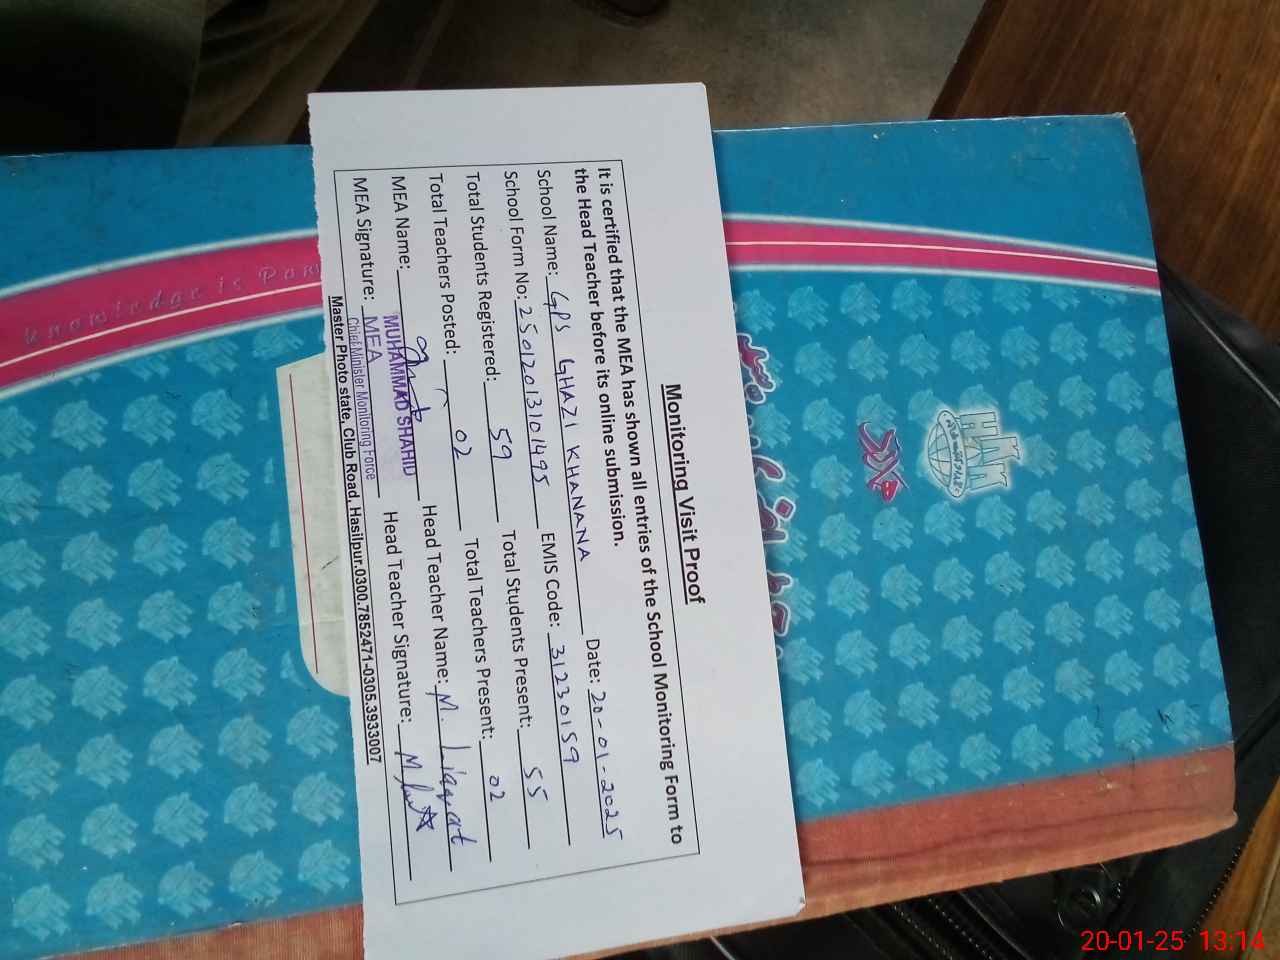 Monitoring Visit Proof
It is certified that the MEA has shown all entries of the School Monitoring Form to
the Head Teacher before its online submission. Date: 20-01-2025
School Name: GPS GHAZI KHANANA
School Form No: 25012013101495 EMIS Code: 31230159
Total Students Registered: 59 Total Students Present: 55
Total Teachers Posted: 02 Total Teachers Present: 02
MEA Name: MUHAMMAD SHAHID Head Teacher Name: M. Liaquat
MEA Signature: MEA Head Teacher Signature:
Chief Minister Monitoring Force
Master Photo state, Club Road, Hasilpur.0300.7852471-0305.3933007
Knowledge is Pow
20-01-25 13:14